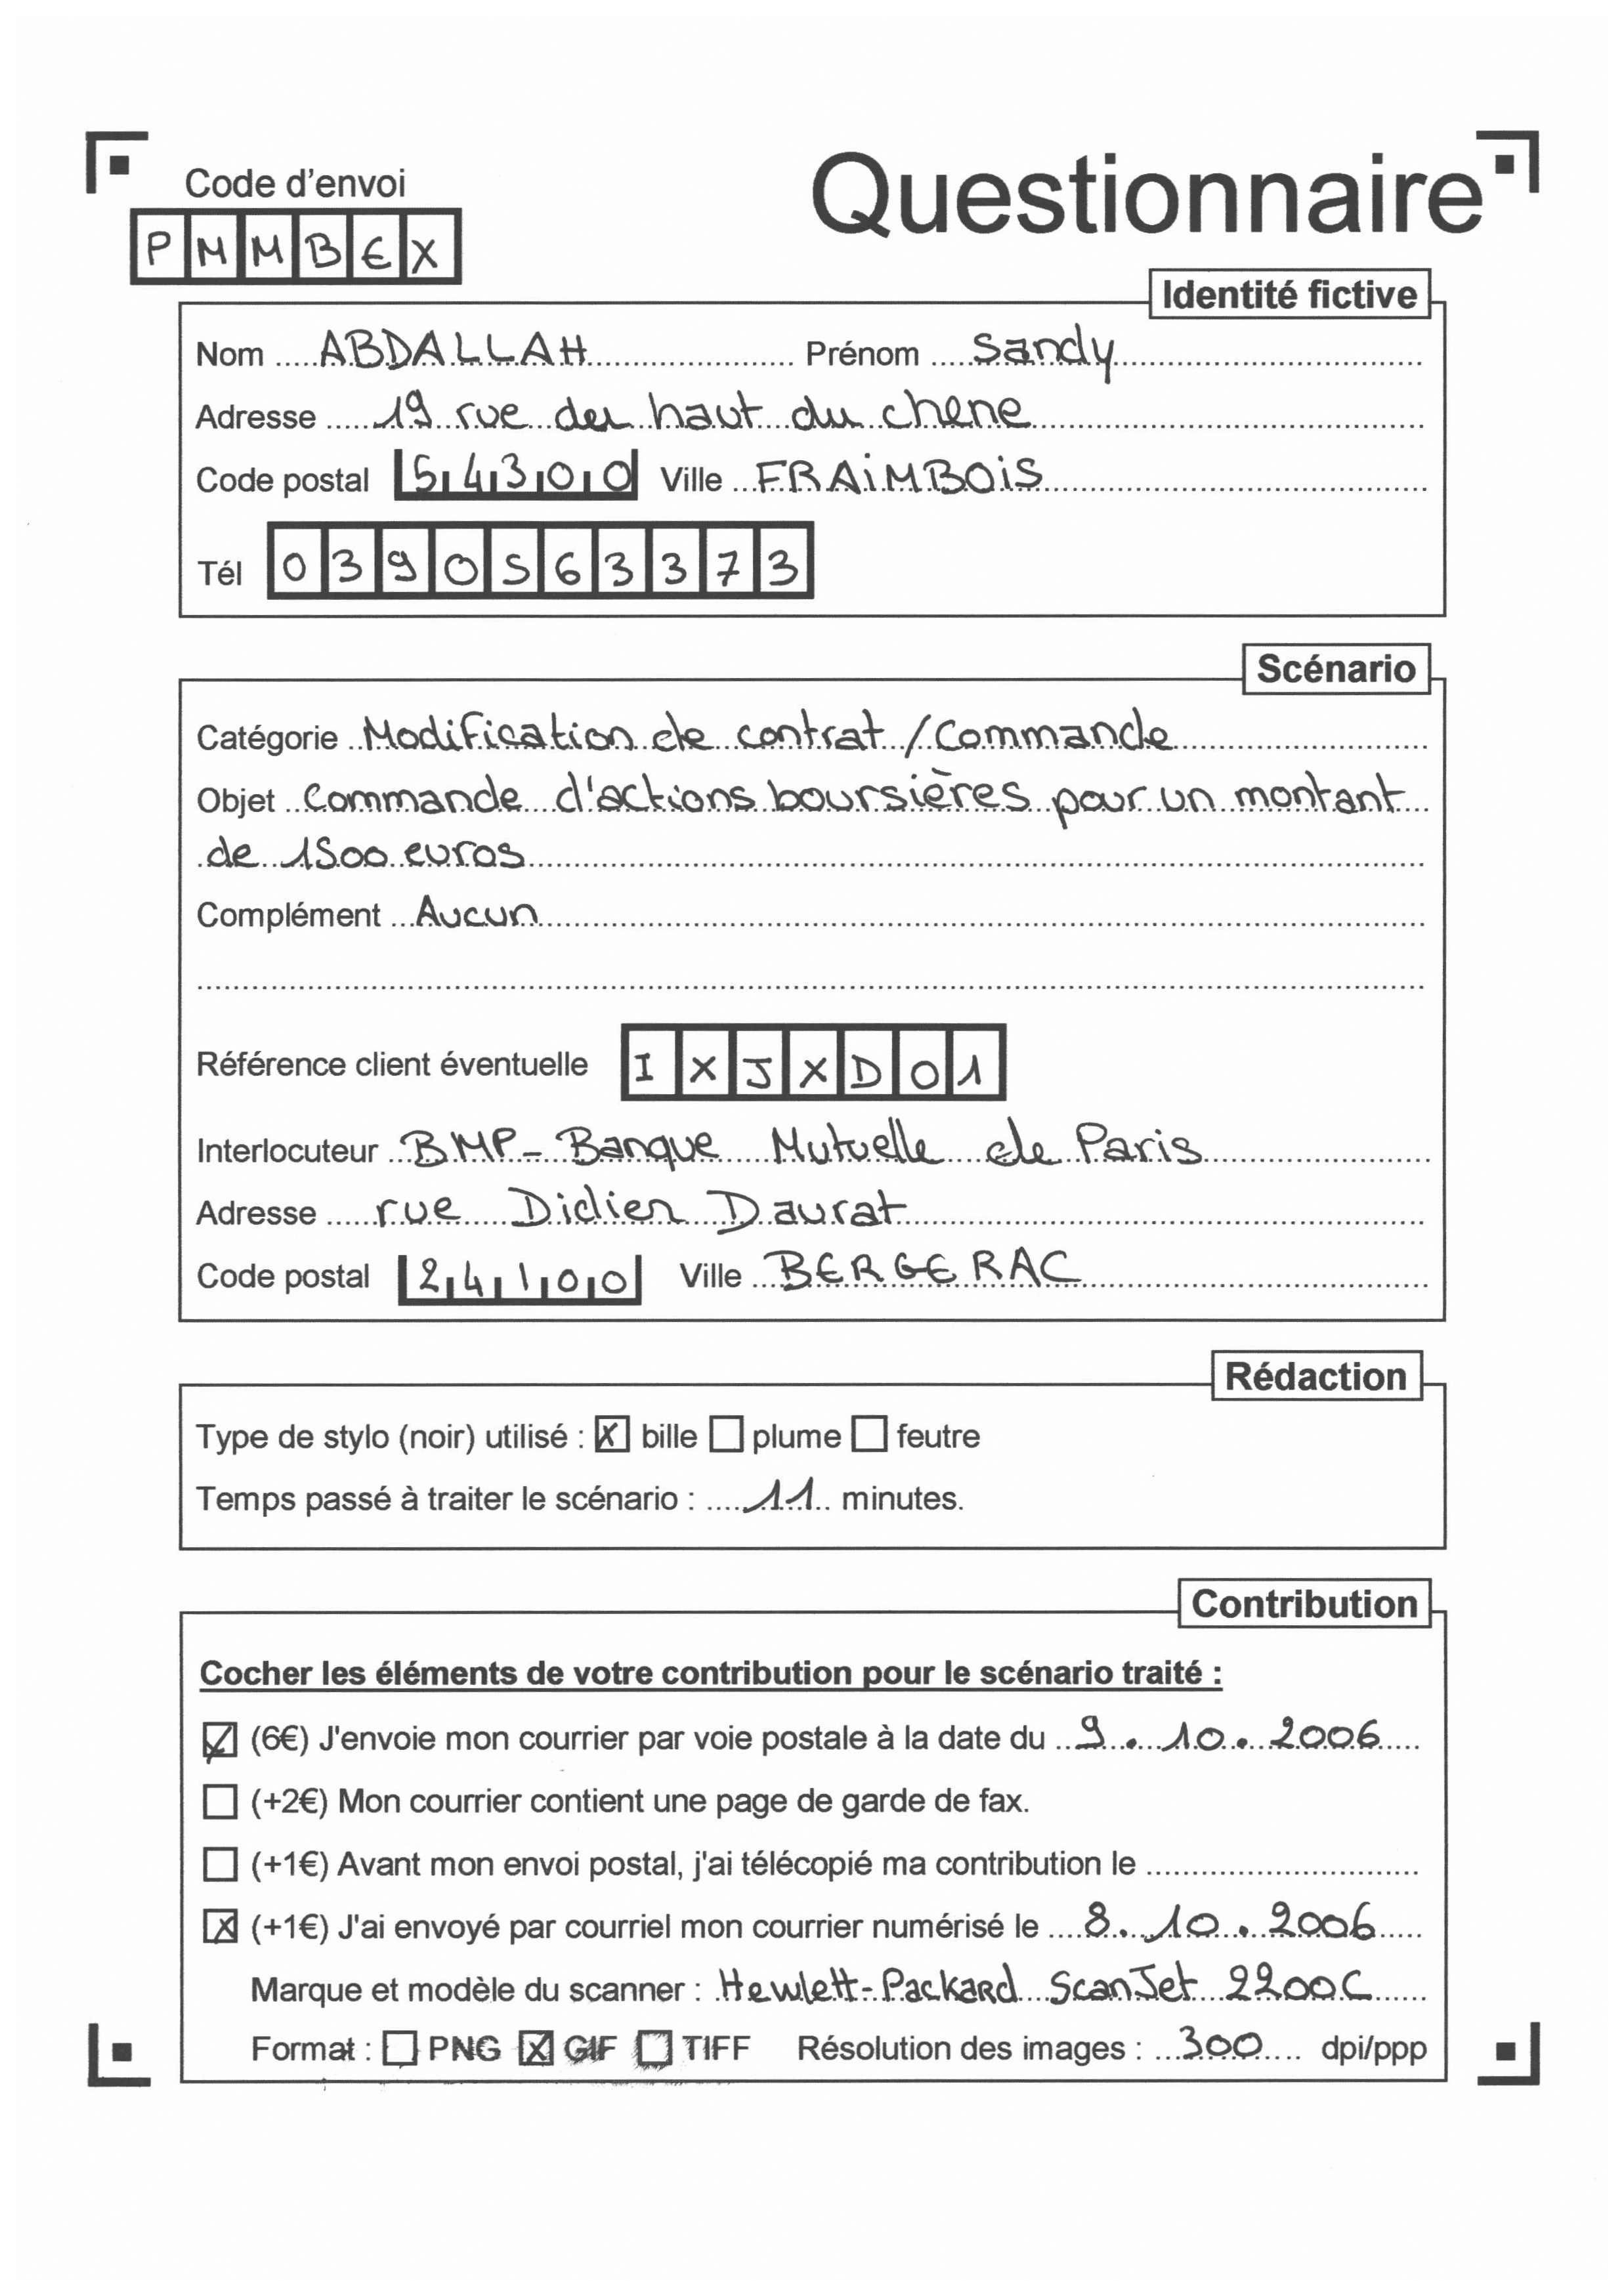 Code d'envoi
Questionnaire
PMMBEX
Identité fictive
Nom ABDALLAH Prénom Sandy
Adresse 19 rue des haut du chene
Code postal 54300 Ville FRAiMBOiS
Tél 0390563373
Scénario
Catégorie Modification de contrat / Commande
Objet Commande d'actions boursières pour un montant
de 1500 euros
Complément Aucun
Référence client éventuelle IXJXD01
Interlocuteur BMP - Banque Mutuelle de Paris
Adresse rue Didier Daurat
Code postal 24100 Ville BERGERAC
Rédaction
Type de stylo (noir) utilisé : ☒ bille ☐ plume ☐ feutre
Temps passé à traiter le scénario : 11 minutes.
Contribution
Cocher les éléments de votre contribution pour le scénario traité :
☒ (6€) J'envoie mon courrier par voie postale à la date du 9.10.2006
☐ (+2€) Mon courrier contient une page de garde de fax.
☐ (+1€) Avant mon envoi postal, j'ai télécopié ma contribution le
☒ (+1€) J'ai envoyé par courriel mon courrier numérisé le 8.10.2006
Marque et modèle du scanner : Hewlett-Packard ScanJet 2200C
Format : ☐ PNG ☒ GIF ☐ TIFF Résolution des images : 300 dpi/ppp